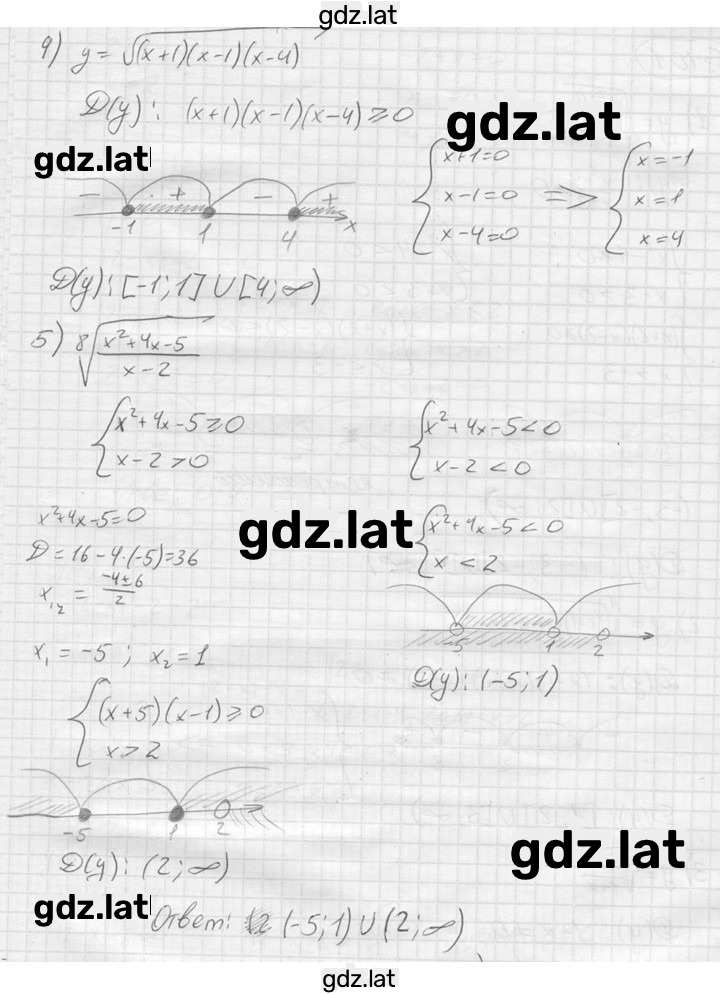 gdz.lat
4) y = √(x+1)(x-1)(x-4)
D(y): (x+1)(x-1)(x-4) ⩾ 0
gdz.lat
gdz.lat
{ x+1=0
x-1=0 => 
x-4=0
{ x=-1
x=1
x=4
- + - +
-1 1 4 x
D(y): [-1; 1] ∪ [4; ∞)
5) ⁸√(x²+4x-5)/(x-2)
{ x²+4x-5 ⩾ 0
x-2 > 0
{ x²+4x-5 < 0
x-2 < 0
x²+4x-5=0
D = 16-4·(-5)=36
x₁,₂ = (-4±6)/2
gdz.lat
{ x²+4x-5 < 0
x < 2
-5 1 2
x₁ = -5; x₂ = 1
D(y): (-5; 1)
{ (x+5)(x-1) ⩾ 0
x > 2
-5 1 2
D(y): (2; ∞)
gdz.lat
gdz.lat
Ответ: (-5; 1) ∪ (2; ∞)
gdz.lat